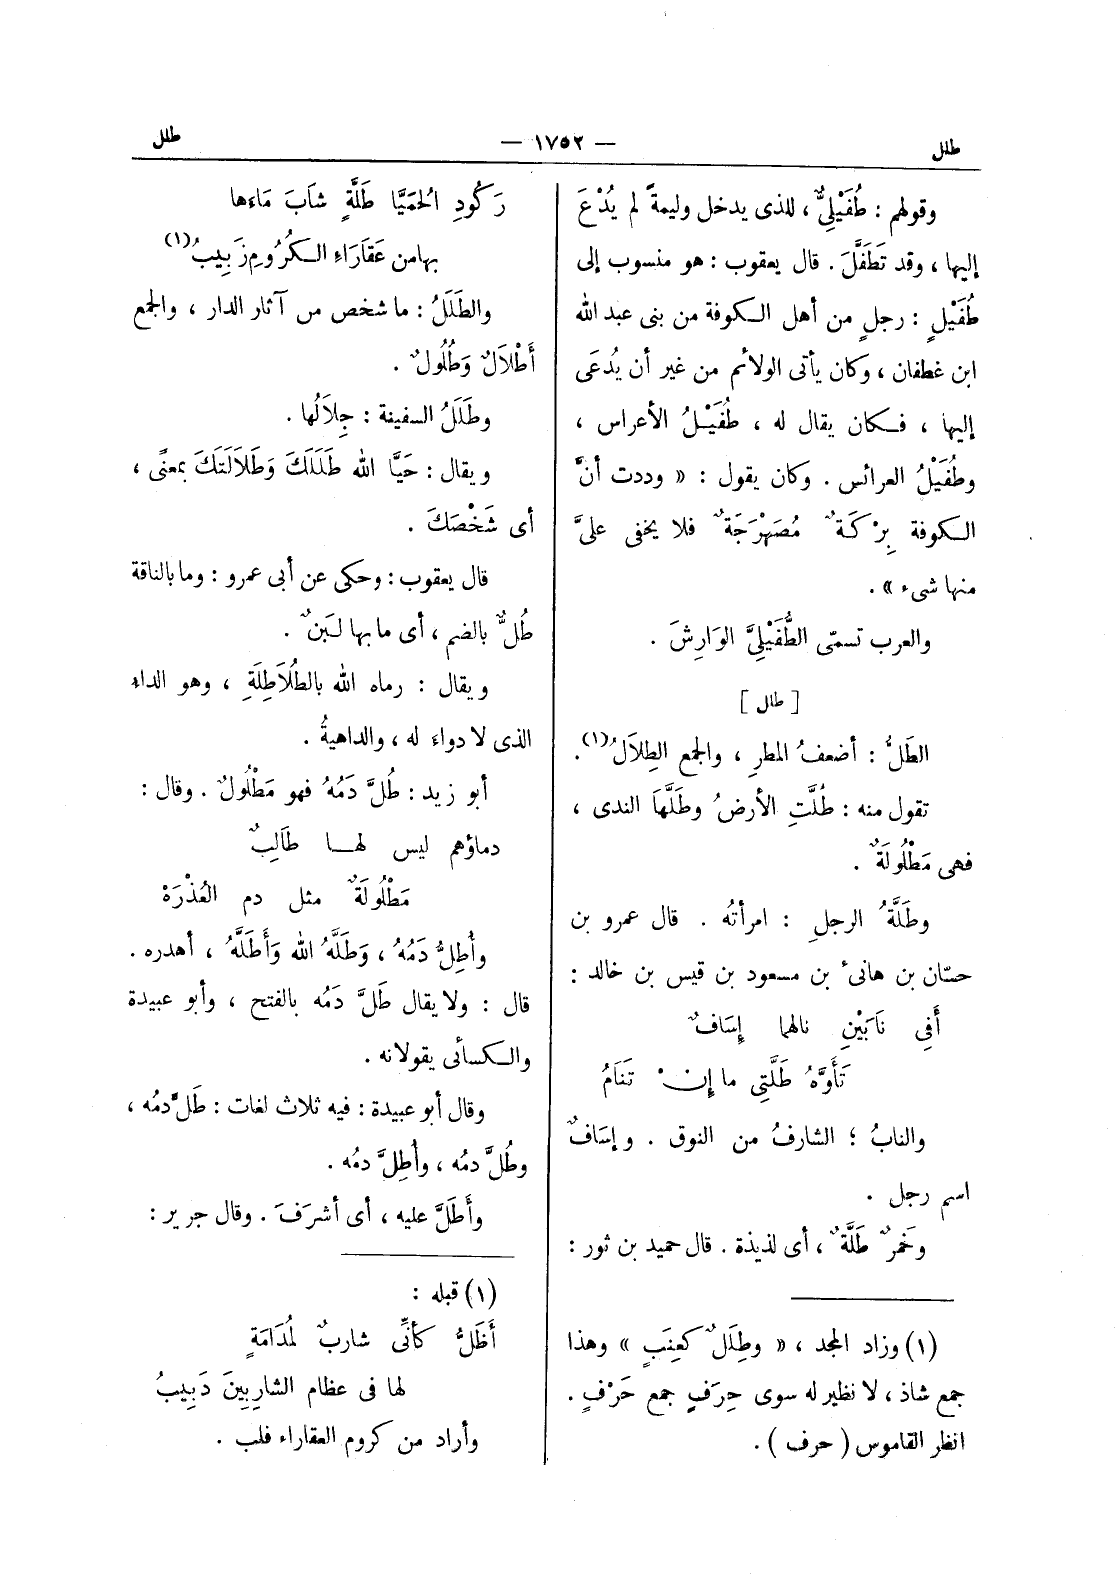 طلل
— ١٧٥٢ —
طلل
وقولهم : طُفَيْلِىٌّ ، للذى يدخل وليمةً لم يُدْعَ
إليها ، وقد تَطَفَّلَ . قال يعقوب : هو منسوب إلى
طُفَيْلٍ : رجلٍ من أهل الكوفة من بنى عبد الله
ابن غطفان ، وكان يأتى الولائم من غير أن يُدعَى
إليها ، فكان يقال له ، طُفَيْلُ الأعراس ،
وطُفَيْلُ العرائس . وكان يقول : « وددت أنَّ
الكوفة بِرْكَةٌ مُصَهْرَجَةٌ فلا يخفى علىَّ
منها شىء » .
والعرب تسمّى الطُّفَيْلِىَّ الوَارِشَ .
[ طلل ]
الطَلُّ : أضعفُ المطرِ ، والجمع الطِلَالُ(١) .
تقول منه : طُلَّتِ الأرضُ وطَلَّهَا الندى ،
فهى مَطْلُولَةٌ .
وطَلَّةُ الرجلِ : امرأتهُ . قال عمرو بن
حسّان بن هانئ بن مسعود بن قيس بن خالد :
أَفِى نَابَيْنِ نالهما إِسَافٌ
تَأَوَّهُ طَلَّتِى ما إِنْ تَنَامُ
والنابُ ؛ الشارفُ من النوق . وإسَافٌ
اسم رجل .
وخَمرٌ طَلَّةٌ ، أى لذيذة . قال حميد بن ثور :
(١) وزاد المجد ، « وطِلَلٌ كعِنَبٍ » وهذا
جمع شاذ ، لا نظير له سوى حِرَفٍ جمع حَرْفٍ .
انظر القاموس ( حرف ) .
رَكُودِ الحُمَيَّا طَلَّةٍ شَابَ مَاءها
بهامن عَقَارَاءِ الكُرُومِ زَبِيبُ(١)
والطَلَلُ : ما شخص من آثار الدار ، والجمع
أَطْلَالٌ وَطُلُولٌ .
وطَلَلُ السفينة : جِلَالُها .
ويقال : حَيَّا الله طَلَلَكَ وَطَلَالَتَكَ بمعنًى ،
أى شَخْصَكَ .
قال يعقوب : وحكى عن أبى عمرو : وما بالناقة
طُلٌّ بالضم ، أى ما بها لَبَنٌ .
ويقال : رماه الله بالطُلَاطِلَةِ ، وهو الداء
الذى لا دواء له ، والداهيةُ .
أبو زيد : طُلَّ دَمُهُ فهو مَطْلُولٌ . وقال :
دماؤهم ليس لها طَالِبٌ
مَطْلُولَةٌ مثل دم العُذْرَهْ
وأُطِلَّ دَمُهُ ، وَطَلَّهُ الله وَأَطَلَّهُ ، أهدره .
قال : ولا يقال طَلَّ دَمُه بالفتح ، وأبو عبيدة
والكسائى يقولانه .
وقال أبو عبيدة : فيه ثلاث لغات : طَلَّ دمُه ،
وطُلَّ دمُه ، وأُطِلَّ دمُه .
وأَطَلَّ عليه ، أى أشرَفَ . وقال جرير :
(١) قبله :
أَظَلُّ كأنِّى شاربٌ لمُدَامَةٍ
لها فى عظام الشاربِينَ دَبِيبُ
وأراد من كروم العقاراء فلب .